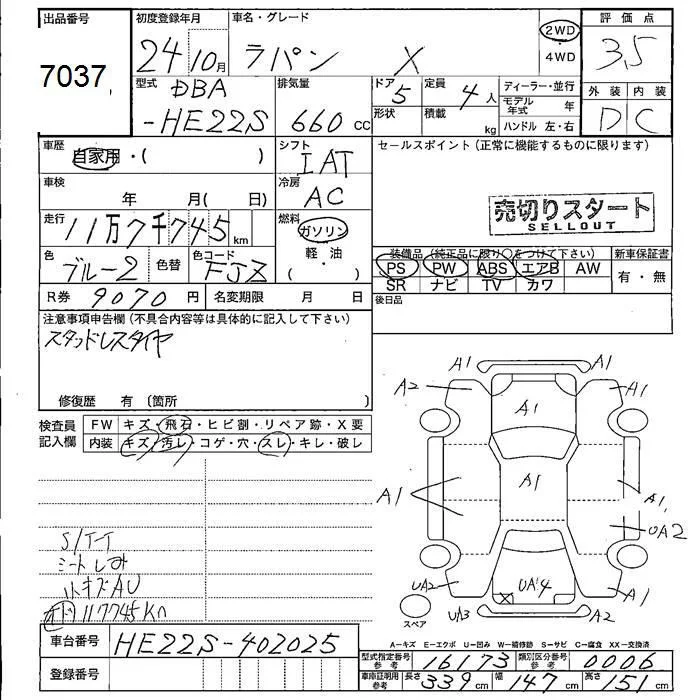 出品番号 初度登録年月 車名・グレード 2WD 評価点
7037 24年10月 ラパン X ・4WD 3.5
型式 排気量 ドア 定員 ディーラー・並行 外装 内装
DBA 5 4人 モデル年式 年
-HE22S 660cc 形状 積載 kg ハンドル 左・右 D C
車歴 シフト セールスポイント(正常に機能するものに限ります)
自家用・( ) IAT
車検 冷房
年 月( 日) AC 売切りスタート
SELLOUT
走行 燃料
11万7千745km ガソリン
軽・油
・( )
装備品(純正品に限り○をつけて下さい) 新車保証書
色 色替 色コード PS PW ABS エアB AW 有・無
ブルー2 FJZ SR ナビ TV カワ
R券 9070円 名変期限 月 日 後日品
注意事項申告欄(不具合内容等は具体的に記入して下さい)
スタッドレスタイヤ
修復歴 有 (箇所 )
検査員 FW キズ・飛石・ヒビ割・リペア跡・X要
記入欄 内装 キズ・汚レ・コゲ・穴・スレ・キレ・破レ
A1 A1
A2 A1 A1
A1 A1 A1
UA2
S/T-T
シートしみ
小キズAU
117745Km
UA2 UA4 A1
UA3 A2
スペア
車台番号 HE22S-402025
A-キズ E-エクボ U-凹み W-補修跡 S-サビ C-腐食 XX-交換済
登録番号
型式指定番号 参考 16173 類別区分番号 参考 0006
車庫証明用 参考 長さ 339cm 幅 147cm 高さ 151cm